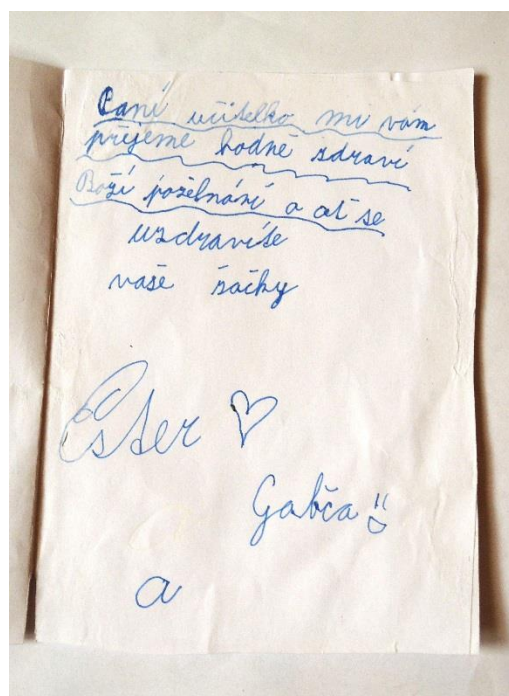 Paní učitelko mi vám
přejeme hodně zdraví
Boží požehnání a ať se
uzdravíte
vaše žačky
Ester ♡
Gabča
a